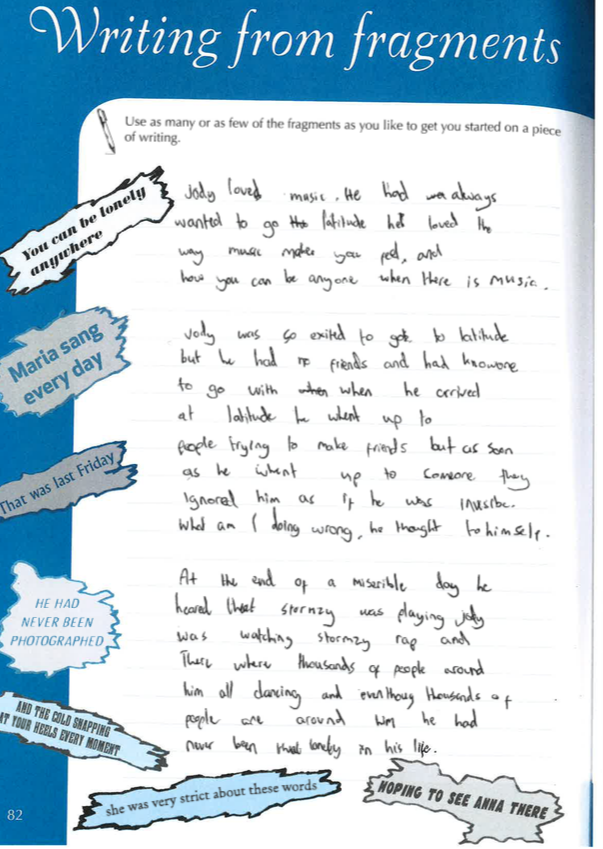 Writing from fragments
Use as many or as few of the fragments as you like to get you started on a piece
of writing.
You can be lonely
anywhere
Maria sang
every day
That was last Friday
HE HAD
NEVER BEEN
PHOTOGRAPHED
AND THE COLD SNAPPING
AT YOUR HEELS EVERY MOMENT
she was very strict about these words
HOPING TO SEE ANNA THERE
Jody loved music. He had always
wanted to go latitude he loved the
way music makes you feel, and
how you can be anyone when there is music.
Jody was so exited to go to latitude
but he had no friends and had knowone
to go with when he arrived
at latitude he whent up to
people trying to make friends but as soon
as he whent up to someone they
ignored him as if he was
What am I doing wrong, he thought to himself.
At the end of a miserible day he
heared that stormzy was playing jody
was watching stormzy rap and
There where thousands of people around
him all dancing and eventhoug thousands of
people are around him he had
never been lonely in his life.
82